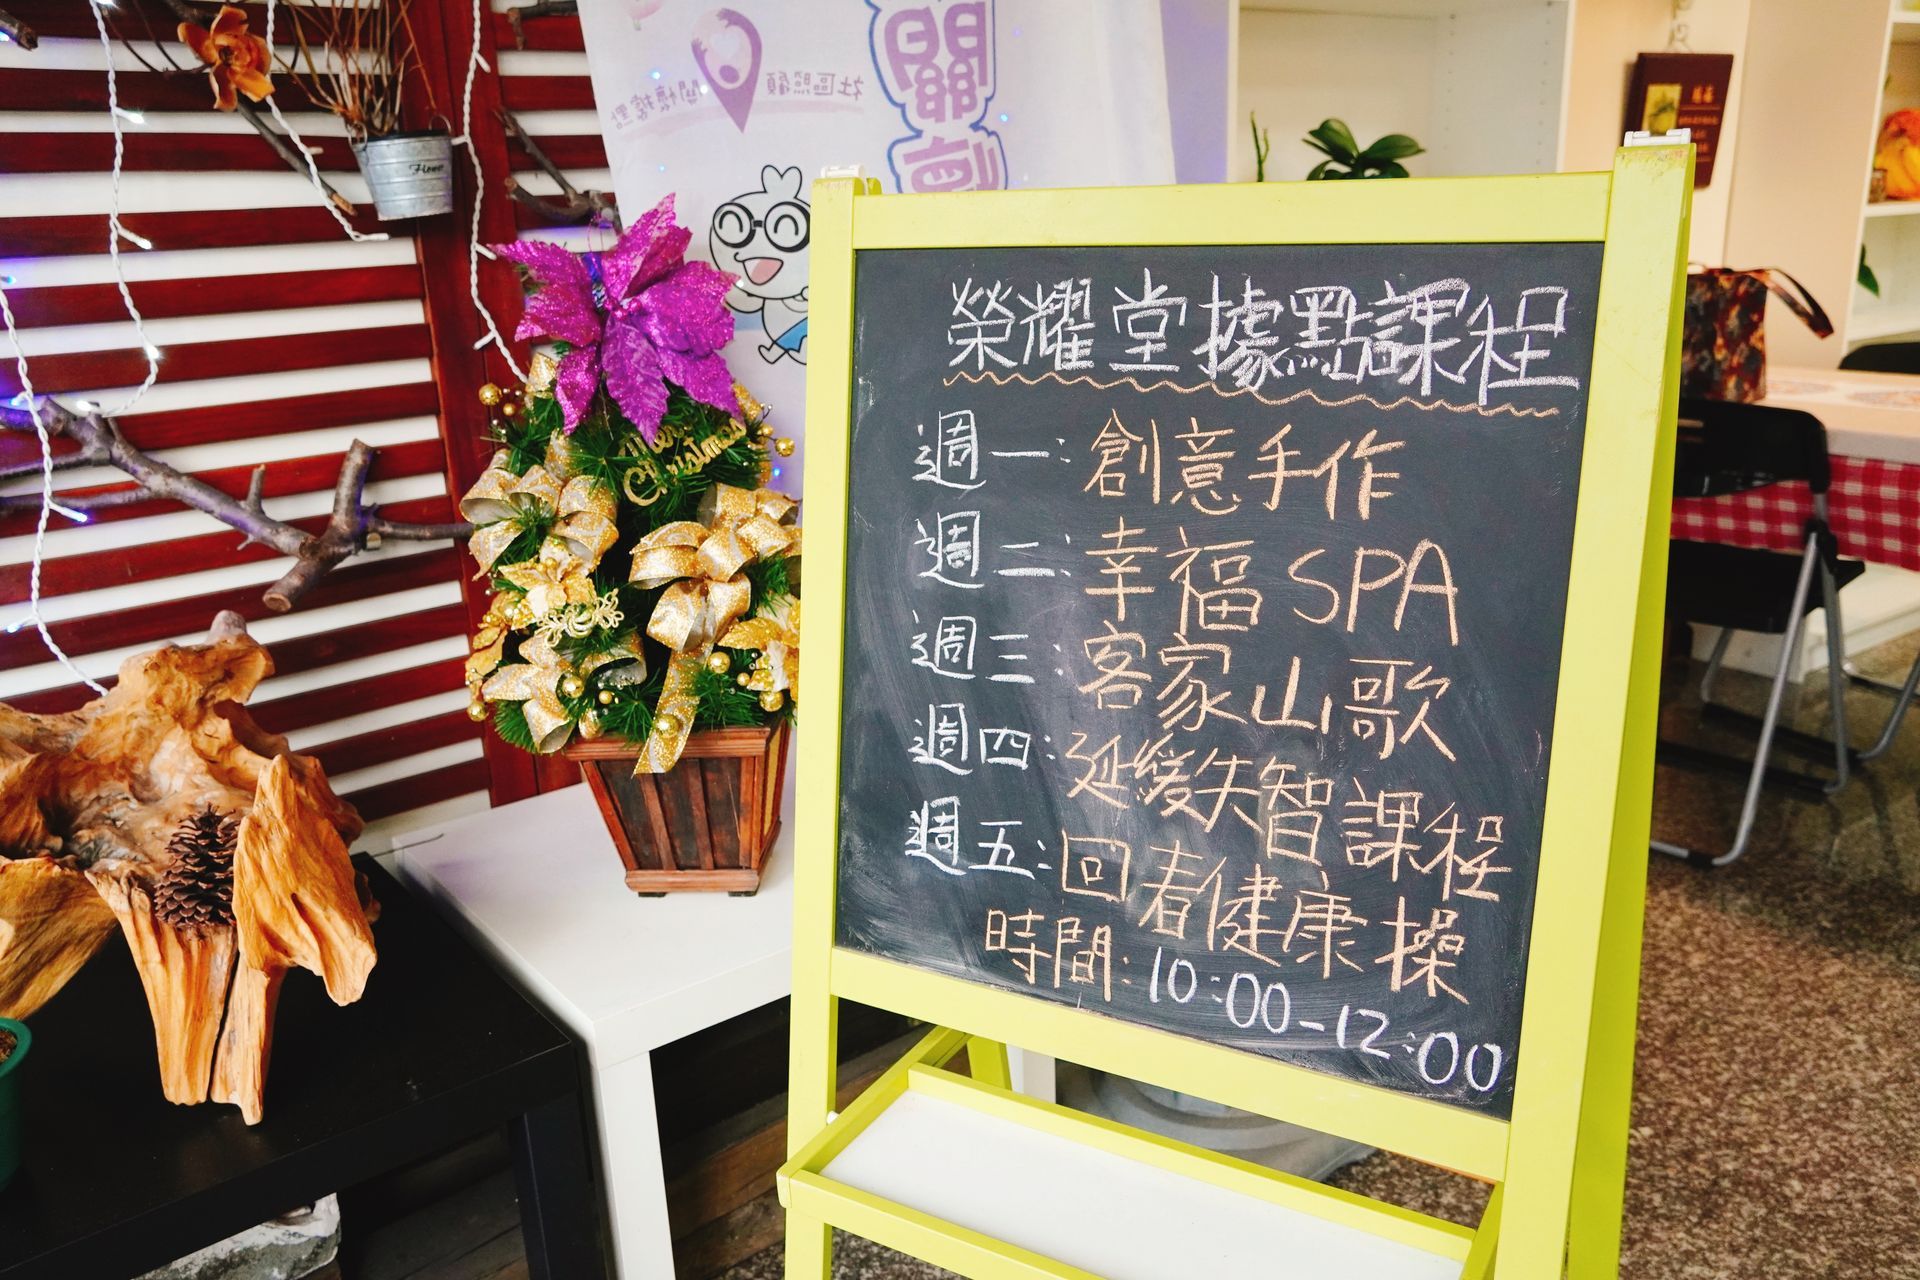 關
社區照顧
關懷據點
Flower
Merry
Christmas
榮耀堂據點課程
週一:創意手作
週二:幸福SPA
週三:客家山歌
週四:延緩失智課程
週五:回春健康操
時間:10:00-12:00